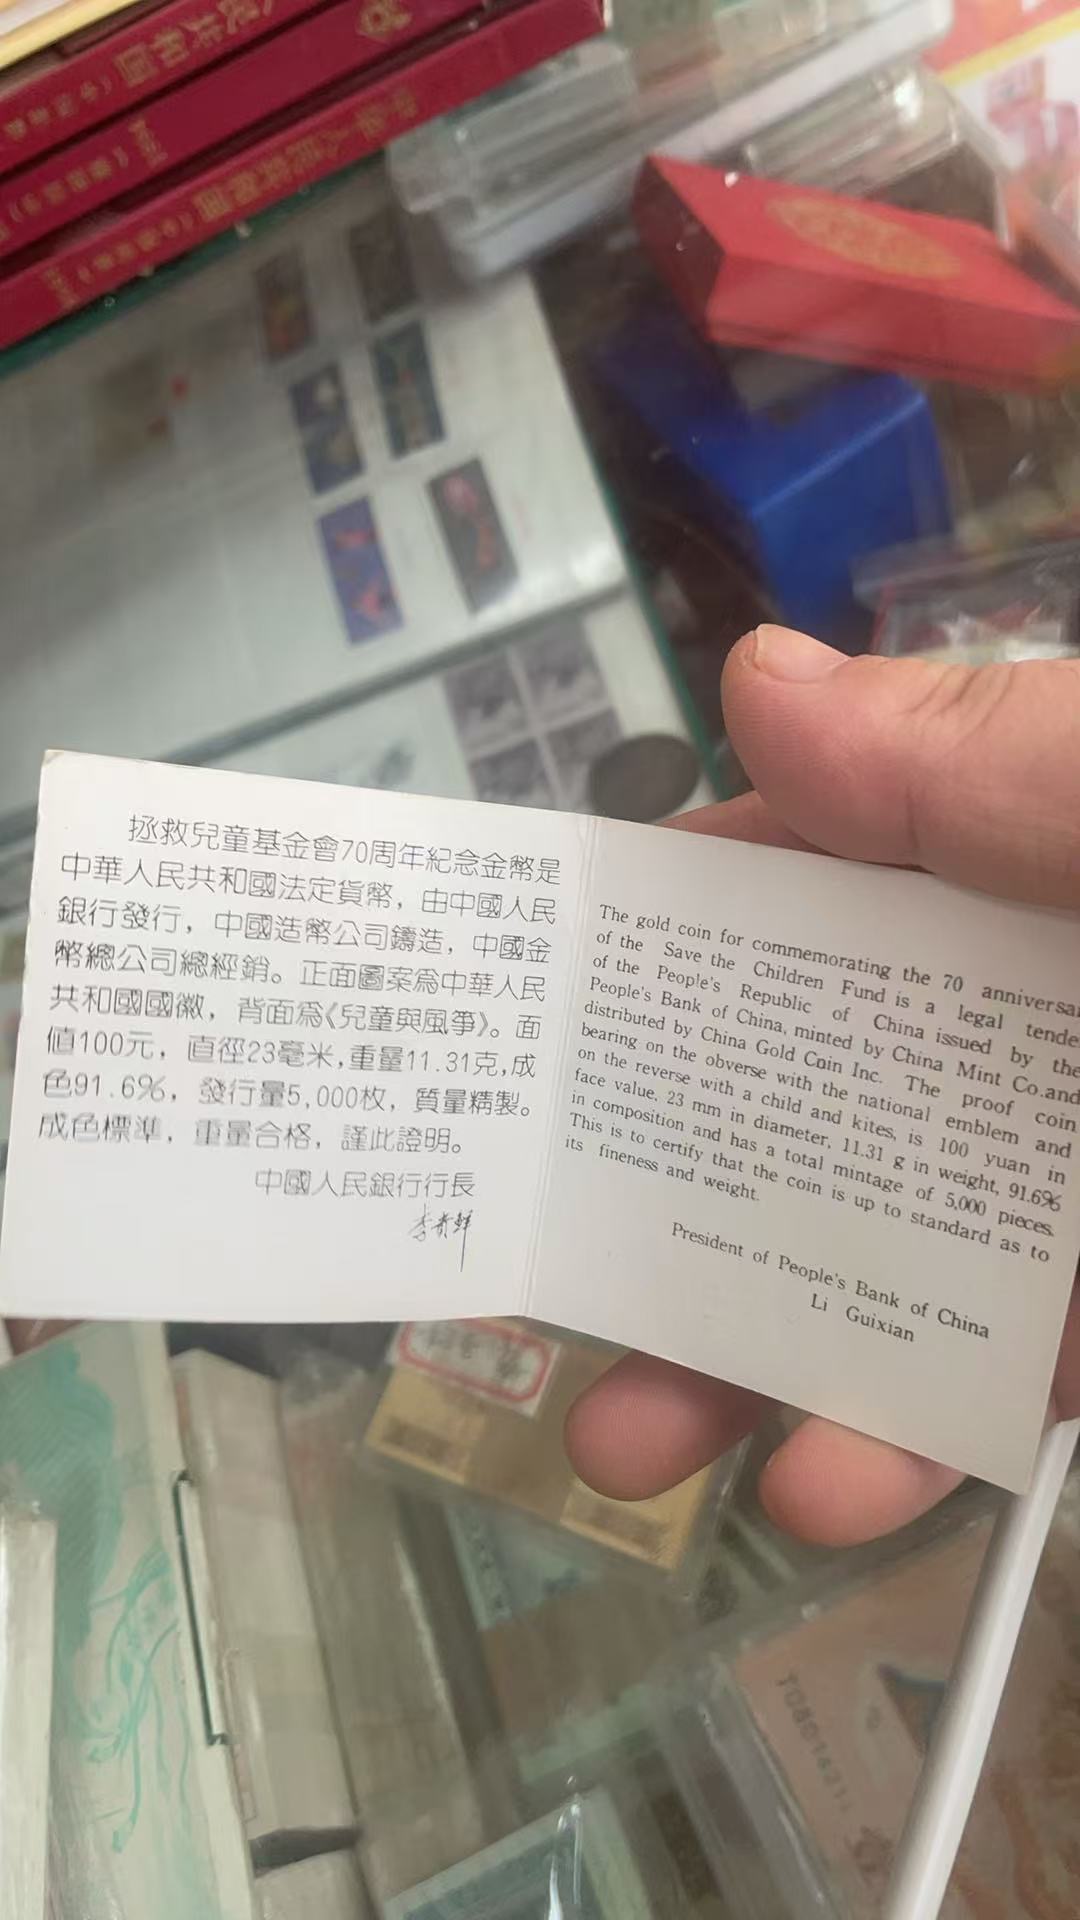 人民共和国
中华人民共和国
拯救兒童基金會70周年紀念金幣是
中華人民共和國法定貨幣，由中國人民
銀行發行，中國造幣公司鑄造，中國金
幣總公司總經銷。正面圖案為中華人民
共和國國徽，背面為《兒童與風箏》。面
值100元，直徑23毫米，重量11.31克，成
色91.6%，發行量5,000枚，質量精製。
成色標準，重量合格，謹此證明。
中國人民銀行行長
李貴鲜
The gold coin for commemorating the 70 anniversar
of the Save the Children Fund is a legal tende
of the People's Republic of China issued by the
People's Bank of China, minted by China Mint Co.and
distributed by China Gold Coin Inc. The proof coin
bearing on the obverse with the national emblem and
on the reverse with a child and kites, is 100 yuan in
face value, 23 mm in diameter, 11.31 g in weight, 91.6%
in composition and has a total mintage of 5,000 pieces.
This is to certify that the coin is up to standard as to
its fineness and weight.
President of People's Bank of China
Li Guixian